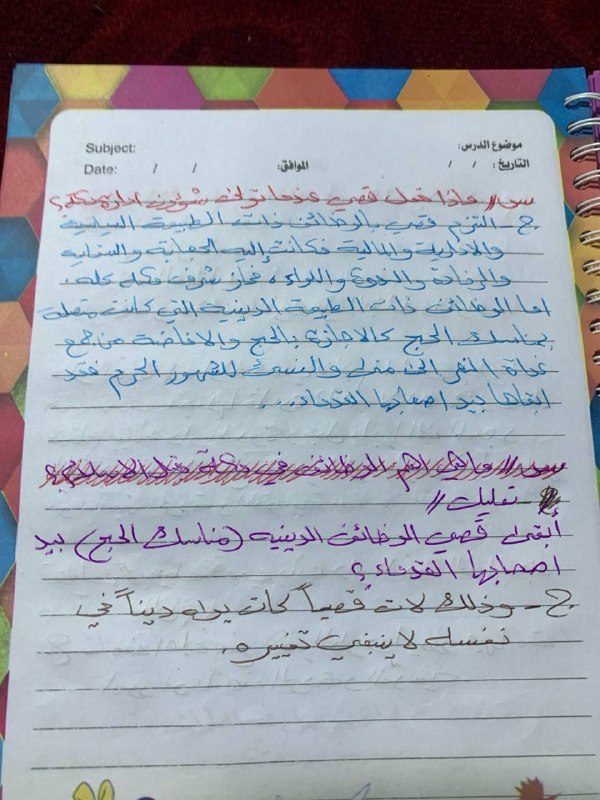 موضوع الدرس: Subject:
التاريخ: / / الموافق: / / Date:
س// ماذا فعل قصي عندما تولى شؤون ادارة مكة؟
ج- التزم قصي بالوظائف ذات الطبيعة السياسية
والادارية والمالية فكانت إليه الحجابة والسقاية
والرفادة والندوة واللواء، فحاز شرف مكة كله.
اما الوظائف ذات الطبيعة الدينية التي كانت متعلقة
بمناسك الحج كالاجازة بالحج والافاضة من جمع
غداة النحر الى منى والنسئ للشهور الحرم فقد
ابقاها بيد اصحابها القدماء...
س// ماهي اهم الوظائف في مكة قبل الاسلام؟
تعليل//
أبقى قصي الوظائف الدينية (مناسك الحج) بيد
اصحابها القدماء؟
ج- وذلك لان قصياً كان يراه ديناً في
نفسه لا ينبغي تغييره.